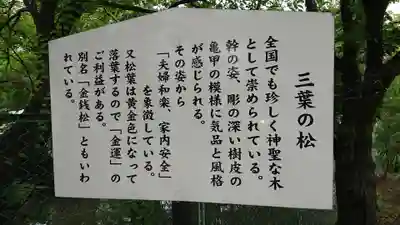 三葉の松
全国でも珍しく神聖な木
として崇められている。
幹の姿、彫の深い樹皮の
亀甲の模様に気品と風格
が感じられる。
その姿から
「夫婦和楽、家内安全」
を象徴している。
又松葉は黄金色になって
落葉するので「金運」の
ご利益がある。
別名「金銭松」ともいわ
れている。